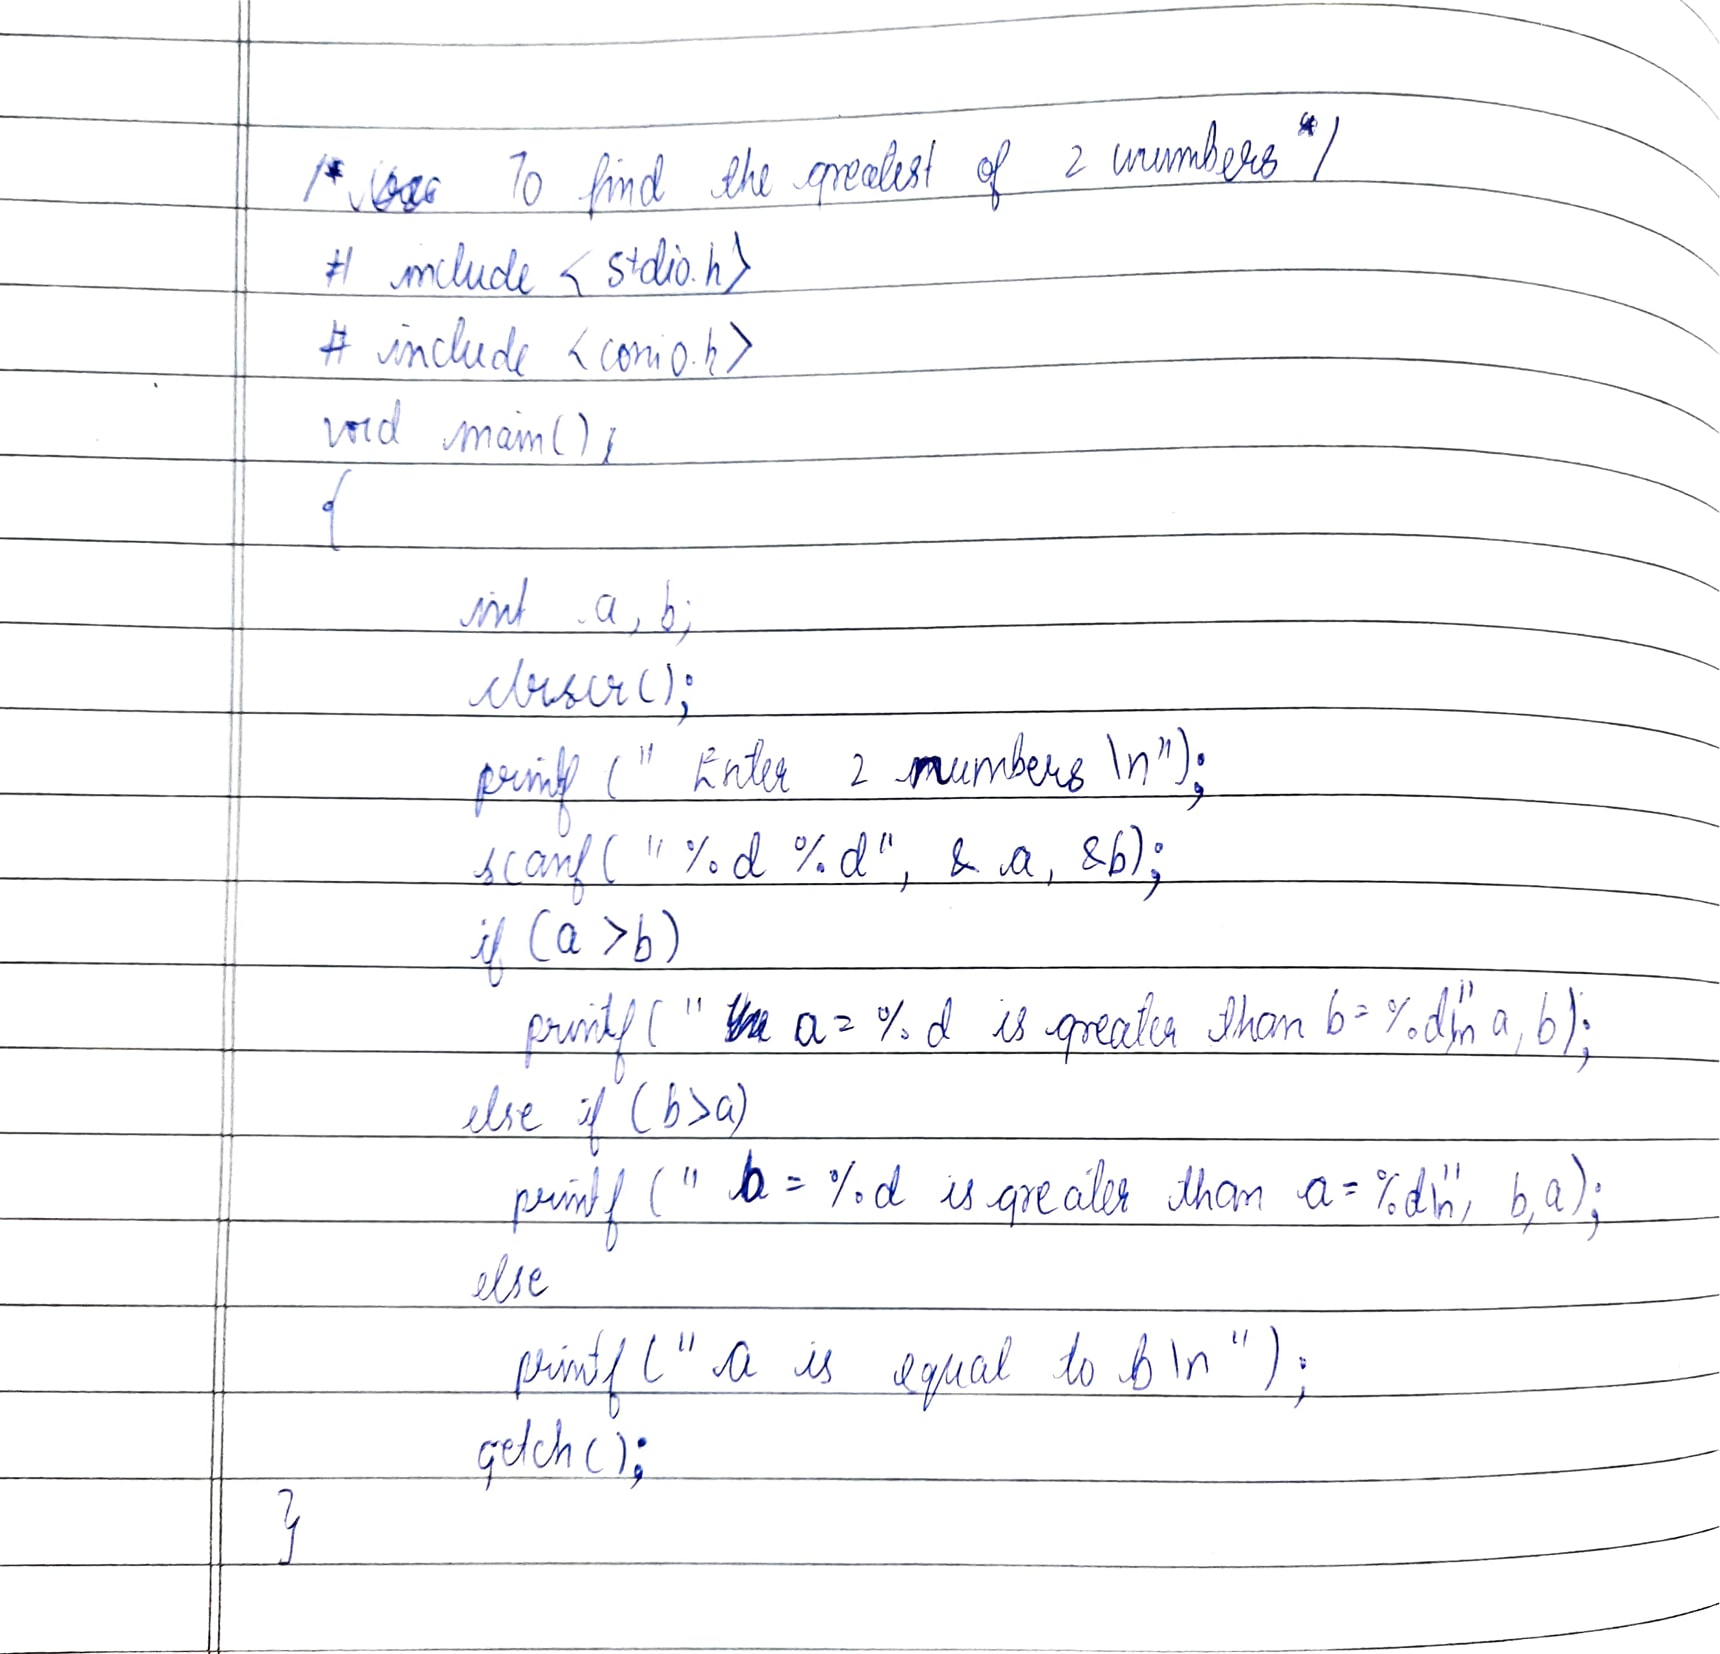 /* To find the greatest of 2 numbers */
# include < stdio.h>
# include <conio.h>
void main();
{
int a, b;
clrscr();
printf (" Enter 2 numbers \n");
scanf( " %d %d", & a, &b);
if (a >b)
printf( " a = %d is greater than b = %d\n" a, b);
else if (b>a)
printf (" b = %d is greater than a = %d\n", b,a);
else
printf (" a is equal to b \n ");
getch();
}